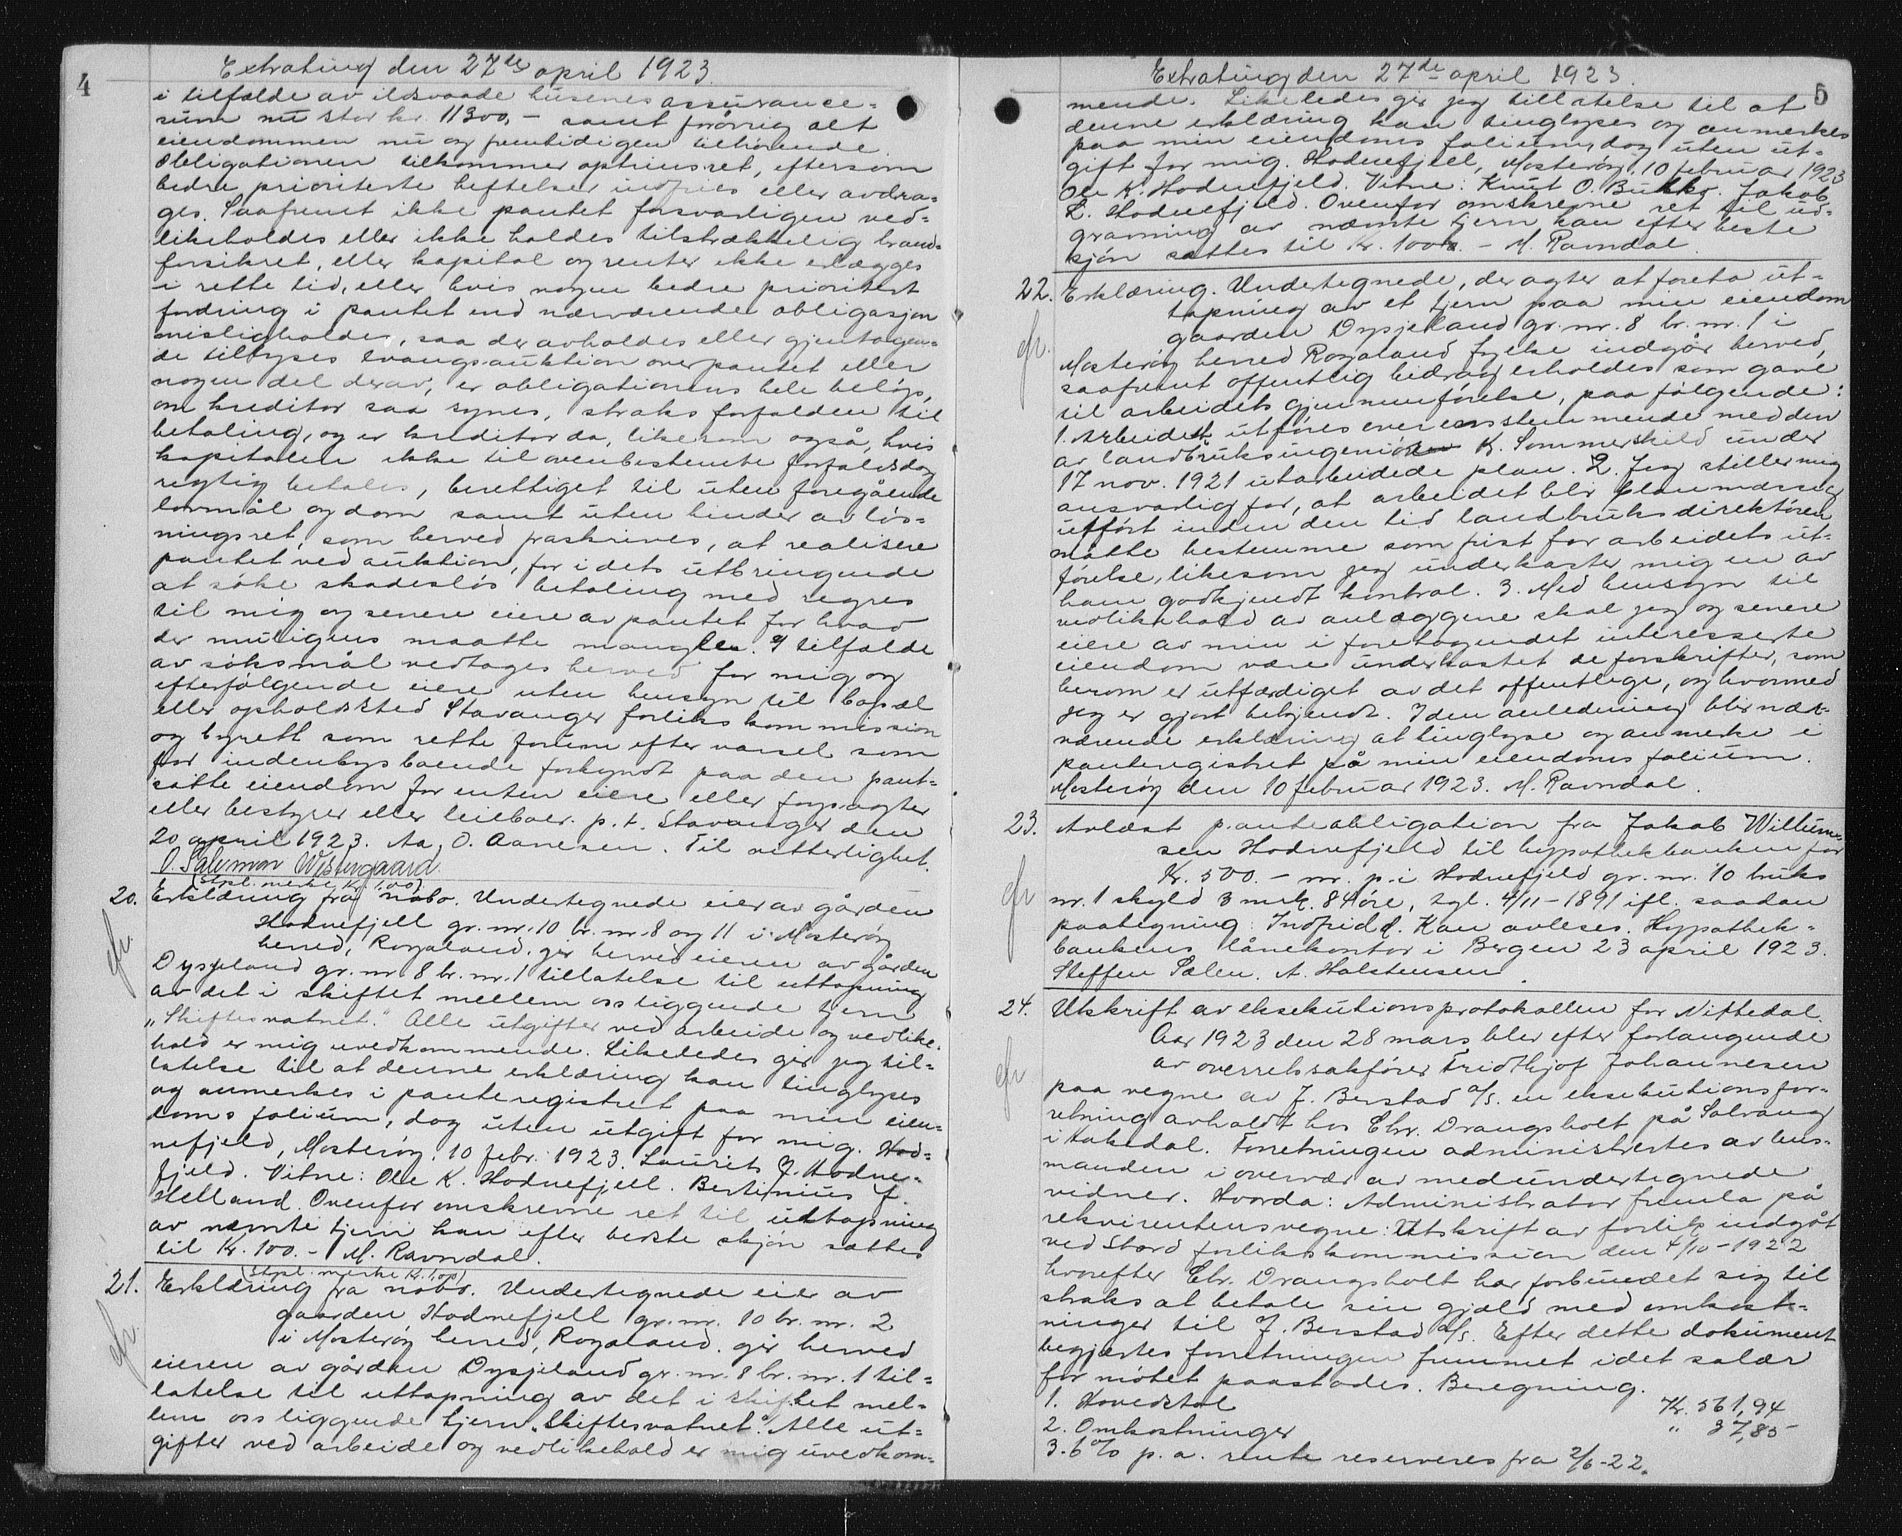 4
Extrating den 27de april 1923.
i tilfælde av ildsvaade husenes assurance-
sum nu stor kr. 11300,- samt forøvrig alt
eiendommen nu og fremtidigen tilhørende
Obligationen tilkommer optrinsret, eftersom
bedre prioriterte heftelser indfries eller avdra-
ges. Saafremt ikke pantet forsvarligen ved-
likeholdes eller ikke holdes tilstrækkelig brand-
forsikret, eller kapital og renter ikke erlægges
i rette tid, eller hvis nogen bedre prioritert
fordring i pantet end nærværende obligasjon
misligholdes, saa der avholdes eller gjentagen-
de tillyses tvangsauktion over pantet eller
nogen del derav, er obligationens hele beløp,
om kreditor saa synes, straks forfalden til
betaling, og er kreditor da, likesom også, hvis
kapitalen ikke til ovenbestemte forfaldsdag
regtig betales, berettiget til uten foregående
lovmål og dom samt uten hinder av løs-
ningsret, som herved fraskrives, at realisere
pantet ved auktion, for i dets utbringende
at søke skadesløs betaling med regres
til mig og senere eiere av pantet for hvad
der muligens maatte mangle. I tilfælde
av søksmål vedtages herved for mig og
efterfølgende eiere uten hensyn til bopæl
eller opholdssted Stavanger forlikskommission
og byrett som rette forum efter varsel som
for indenbys boende forkyndt paa den pant-
satte eiendom for enten eiere eller forpagter
eller bestyrer eller leilboer. p.t. Stavanger den
20 april 1923. Aa. O. Aanesen. Til vitterlighet.
O. Salomon Westergaard
(Stpl. merke Kr. 1,00)
20. Erklæring fra nabo. Undertegnede eier av gården
Hodnefjell gr. nr. 10 br. nr. 8 og 11 i Mosterøy
herred, Rogaland, gir herved eieren av gården
Dysjeland gr. nr 8 br. nr. 1 tillatelse til uttapning
av det i skiftet mellem oss liggende tjern
"Skiftesvatnet." Alle utgifter ved arbeide og vedlike-
hold er mig uvedkommende. Likeledes gir jeg til-
latelse til at denne erklæring kan tinglyses
og anmerkes i panteregistret paa min eien-
doms folium, dog uten utgift for mig. Hod-
nefjeld, Mosterøy. 10 febr. 1923. Laurits J. Hodne-
fjeld. Vitne: Ole K. Hodnefjell. Bertinius J.
Helland. Ovenfor omskrevne ret til uttapning
av nævnte tjern kan efter bedste skjøn sættes
til Kr. 100.- M. Ravndal.
(Stpl. merke Kr. 1,00)
21. Erklæring fra nabo. Undertegnede eier av
gaarden Hodnefjell gr. nr. 10 br. nr. 2
i Mosterøy herred, Rogaland, gir herved
eieren av gården Dysjeland gr. nr. 8 br. nr. 1 til-
latelse til uttapning av det i skiftet mel-
lem oss liggende tjern "Skiftesvatnet." Alle ut-
gifter ved arbeide og vedlikehold er mig uvedkom-
5
Extrating den 27de april 1923.
mende. Likeledes gir jeg tillatelse til at
denne erklæring kan tinglyses og anmerkes
paa min eiendoms folium, dog uten ut-
gift for mig. Hodnefjell, Mosterøy, 10 februar 1923
Ole K. Hodnefjeld. Vitne: Knut O. Jakob
L. Hodnefjeld. Ovenfor omskrevne ret til ud-
gravning av nævnte tjern kan efter beste
skjøn sættes til Kr. 100.- M. Ravndal.
22. Erklæring. Undertegnede, der agter at foreta ut-
tapning av et tjern paa min eiendom
gaarden Dysjeland gr. nr. 8 br. nr. 1 i
Mosterøy herred Rogaland fylke indgår herved,
saafremt offentlig bidrag erholdes som gave
til arbeidets gjennemførelse, paa følgende:
1. Arbeidet utføres overensstemmende med den
av landbruksingeniør K. Sommerschild under
17 nov. 1921 utarbeidede plan. 2. Jeg stiller mig
ansvarlig for, at arbeidet blir planmæssig
utført inden den tid landbruksdirektøren
måtte bestemme som frist for arbeidets ut-
førelse, likesom jeg underkaster mig en av
ham godkjendt kontrol. 3. Med hensyn til
vedlikehold av anlæggene skal jeg og senere
eiere av min i foretagendet interesserte
eiendom være underkastet de forskrifter, som
herom er utfærdiget av det offentlege, og hvormed
jeg er gjort bekjendt. I den anledning blir nær-
værende erklæring at tinglyse og anmerke i
panteregistret på min eiendoms folium.
Mosterøy den 10 februar 1923. M. Ravndal.
23. Avlæst panteobligation fra Jakob Willum-
sen Hodnefjeld til hypothekbanken for
Kr. 500.- m. p. i Hodnefjeld gr. nr. 10 bruks
nr. 1 skyld 3 mrk. 84 øre, tgl. 4/11-1891 ifl. saadan
paategning: Indfridd. Kan avleses. Hypothek-
bankens lånekontor i Bergen 23 april 1923.
Steffen Sælen. A. Halstensen
24. Utskrift av eksekutionsprotokollen for Nittedal.
Aar 1923 den 28 mars blev efter forlangende
av overretssakfører Fridthjof Johannesen
paa vegne av J. Berstad a/s. en eksekutionsfor-
retning avholdt hos Chr. Drangsholt på Solvang
i Hakedal. Forretningen administrertes av lens-
manden i overvær av medundertegnede
vidner. Hvorda: Administrator fremla på
rekvirentens vegne: Utskrift av forlik indgåt
ved Stord forlikskommission den 4/10-1922
hvorefter Chr. Drangsholt har forbundet sig til
straks at betale sin gjæld med omkost-
ninger til J. Berstad a/s. Efter dette dokument
begjærtes forretningen fremmet idet salær
for møtet paastodes. Beregning.
1. Hovedstol Kr. 561,94
2. Omkostninger " 37,85
3. 6% p. a. rente reserveres fra 2/6-22.